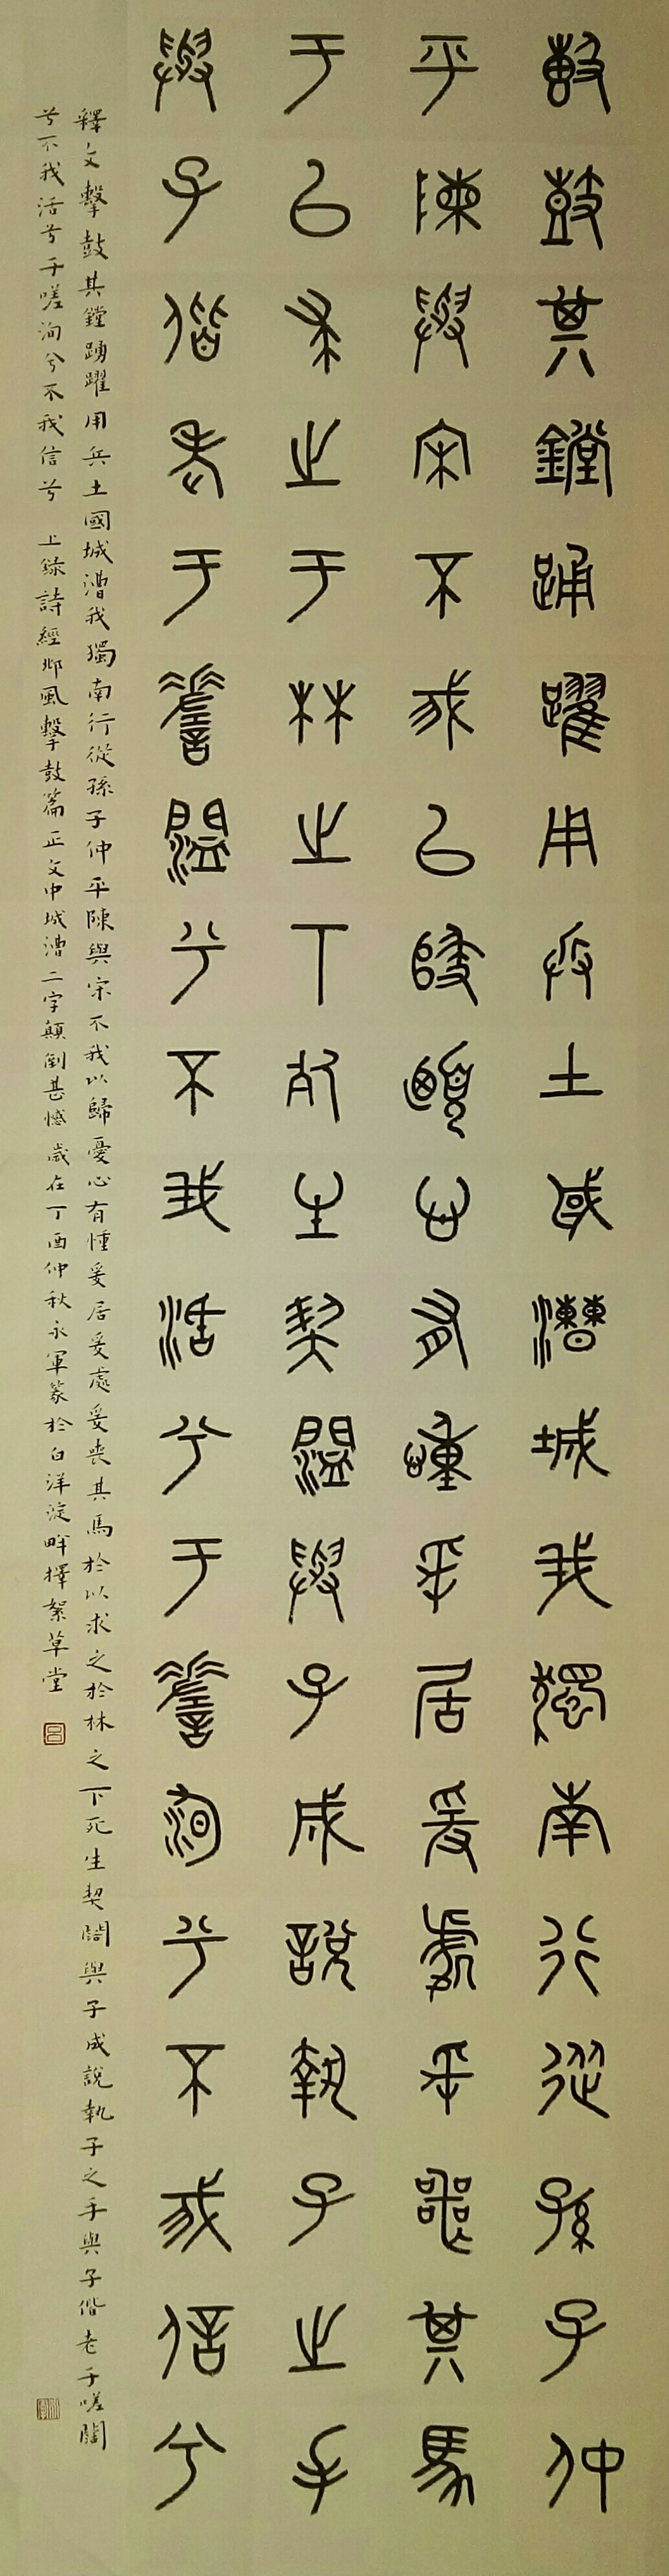 擊鼓其鏜踊躍用兵土國漕城我獨南行從孫子仲
平陳與宋不我以歸憂心有忡爰居爰處爰喪其馬
于以求之于林之下死生契闊與子成說執子之手
與子偕老于嗟闊兮不我活兮于嗟洵兮不我信兮
釋文擊鼓其鏜踴躍用兵土國城漕我獨南行從孫子仲平陳與宋不我以歸憂心有憧爰居爰處爰喪其馬於以求之於林之下死生契闊與子成說執子之手與子偕老于嗟闊
兮不我活兮于嗟洵兮不我信兮 上錄詩經邶風擊鼓篇正文中城漕二字顛倒甚憾 歲在丁酉仲秋永軍篆於白洋淀畔擇絮草堂
呂